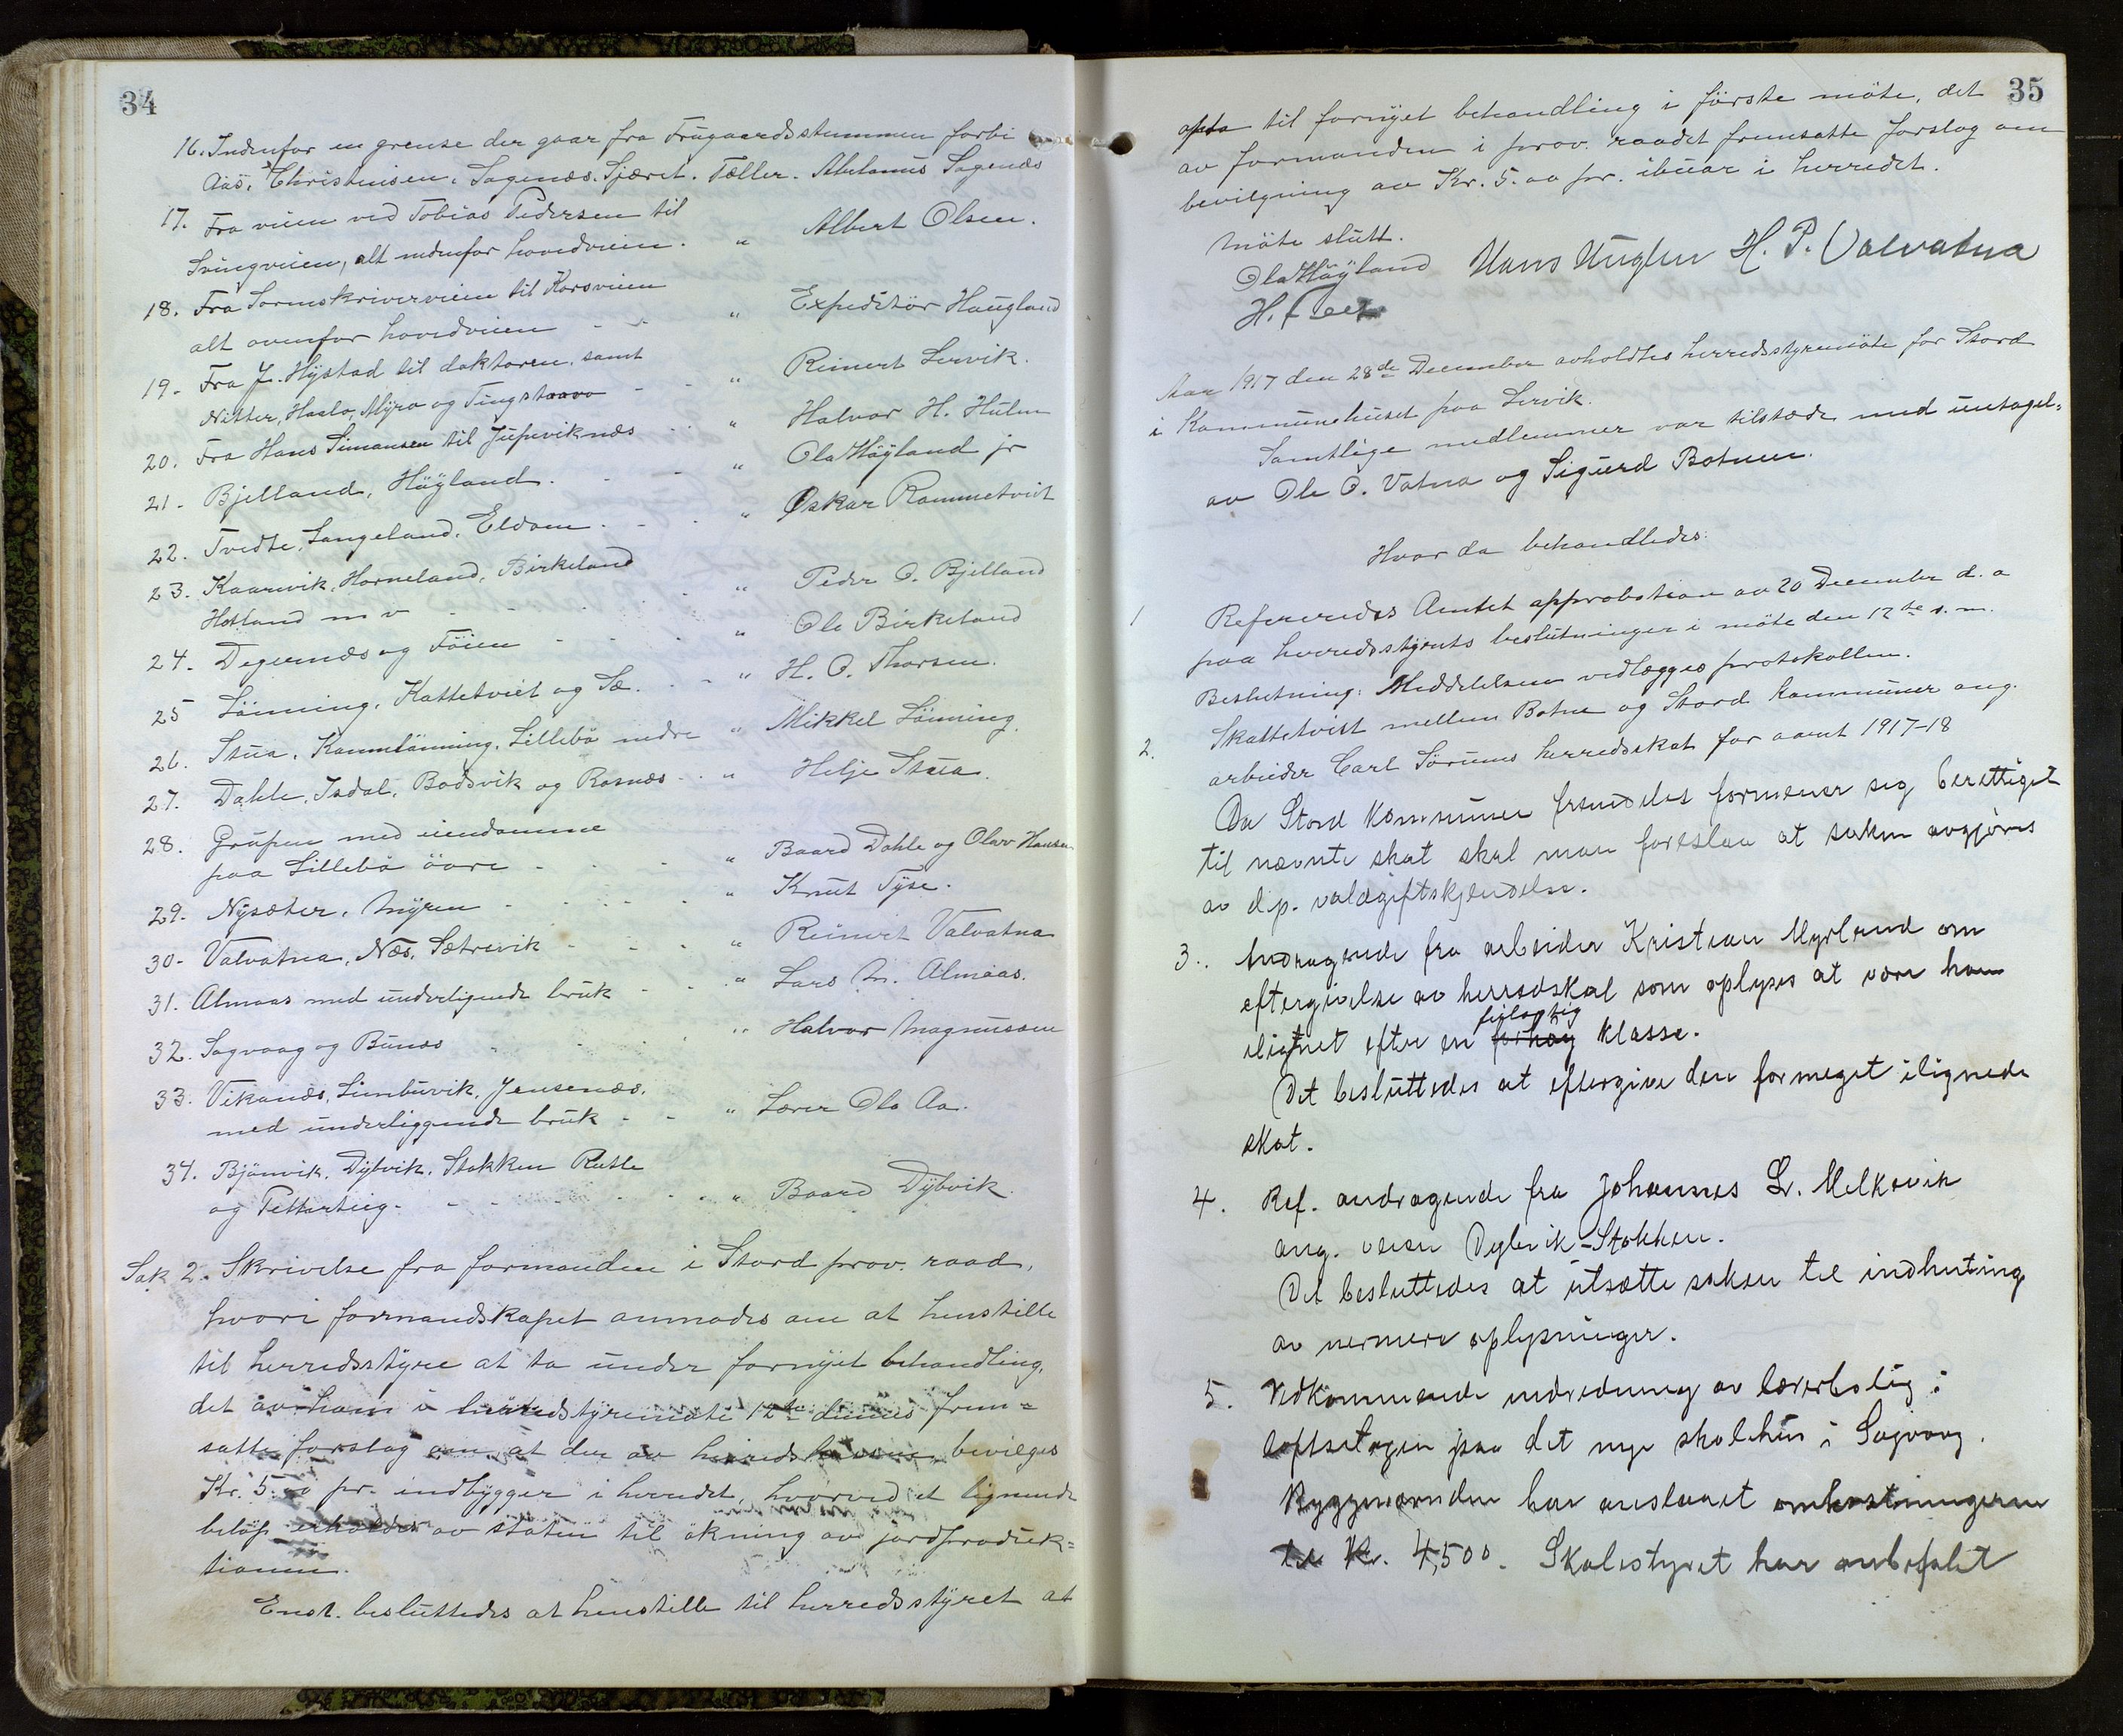 34
16. Indenfor en grense der gaar fra Frugaardsstemmen forbi
Aas, Christensen, Sagenæs. Sjæret. Tæller. Abelanus Sagenæs
17. Fra veien ved Tobias Pedersen til
Svingveien, alt nedenfor hovedveien. " Albert Olsen.
18. Fra Sorenskriverveien til Korsveien
alt ovenfor hovedveien - - " Expeditör Haugland
19. Fra J. Hystad til doktoren, samt
Nitter, Haslo, Myra og Tingstaavo - - " Reinert Lervik.
20. Fra Hans Simonsen til Jupeviknæs - - " Halvor H. Hulen
21. Bjelland, Höyland. - - " Ola Höyland jr
22. Tvedte, Langeland, Eldöen - - " Oskar Rommetveit
23. Kaarevik, Horneland, Birkeland
Hotland m v - - - " Peder O. Bjelland
24. Degernæs og Föien - - - " Ole Birkeland
25 Lönning, Kattetveit og Sæ. - - " H. O. Thorsen.
26. Stua, Kannelönning, Lillebö nedre " Mikkel Lönning.
27. Dahle, Isdal, Bodsvik og Rosnæs - - " Helje Stua.
28. Grupen med eiendomme
paa Lillebö övre - - " Baard Dahle og Olav Hansen
29. Nysæter, Myren - - - - " Knut Tyse.
30. Valvatna, Næs, Sætrevik - - - " Reinert Valvatna
31. Almaas med underligende bruk - - " Lars M. Almaas.
32. Sagvaag og Bunæs - - - " Halvor Magnussen
33. Vikanæs, Limbuvik, Jensenæs,
med underliggende bruk - - " Lærer Ola Aa.
34. Björnvik, Dybvik, Stokken Rusle
og Pettarteig. - - - - " Baard Dybvik.
Sak 2. Skrivelse fra formanden i Stord prov. raad,
hvori formandskapet anmodes om at henstille
til herredsstyre at ta under fornyet behandling,
det av ham i herredstyremöte 12te dennes frem=
satte forslag om at der av herredskassen bevilges
Kr. 5.00 pr. indbygger i herredet, hvorved et lignende
belöp erholdes av staten til ökning av jordproduk=
tionen.
Enst. besluttedes at henstille til herredsstyret at
35
opta til fornyet behandling i förste möte, det
av formanden i prov. raadet fremsatte forslag om
bevilgning av Kr. 5.00 pr. ibuar i herredet.
Möte slutt.
Ola Höyland Hans Uuglen H. P. Valvatna
Aar 1917 den 28de December avholdtes herredsstyremöte for Stord
i Kommunehuset paa Lervik.
Samtlige medlemmer var tilstede med untagel=
av Ole O. Vatna og Sigurd Botnen.
Hvor da behandledes:
1 Refereredes Amtets approbation av 20 December d. a
paa herredsstyrets beslutninger i möte den 12te s. m.
Beslutning: Meddelelsen vedlægges protokollen.
2. Skattetvist mellem Botne og Stord kommuner ang.
arbeider Carl Sörums herredsskat for aaret 1917-18
Da Stord Kommune fremdeles formener seg berettiget
til nævnte skat skal man foreslaa at saken avgjöres
av dep. voldgiftskjendelse.
3.. Andragende fra arbeider Kristian Myrland om
eftergivelse av herredskat som oplyses at være ham
ilignet efter en for høy feilagtig klasse.
Det besluttedes at eftergive den formeget ilignede
skat.
4. Ref. andragende fra Johannes Lr. Melkevik
ang. veien Dybvik-Stokken.
Det besluttedes at utsætte saken til indhenting
av nermere oplysninger.
5. Vedkommende indredning av lærerbolig i
loftsetagen paa det nye skolehus i Sagvaag.
Byggenevnden har anslaaet omkostningerne
til Kr. 4,500. Skolestyret har anbefalet